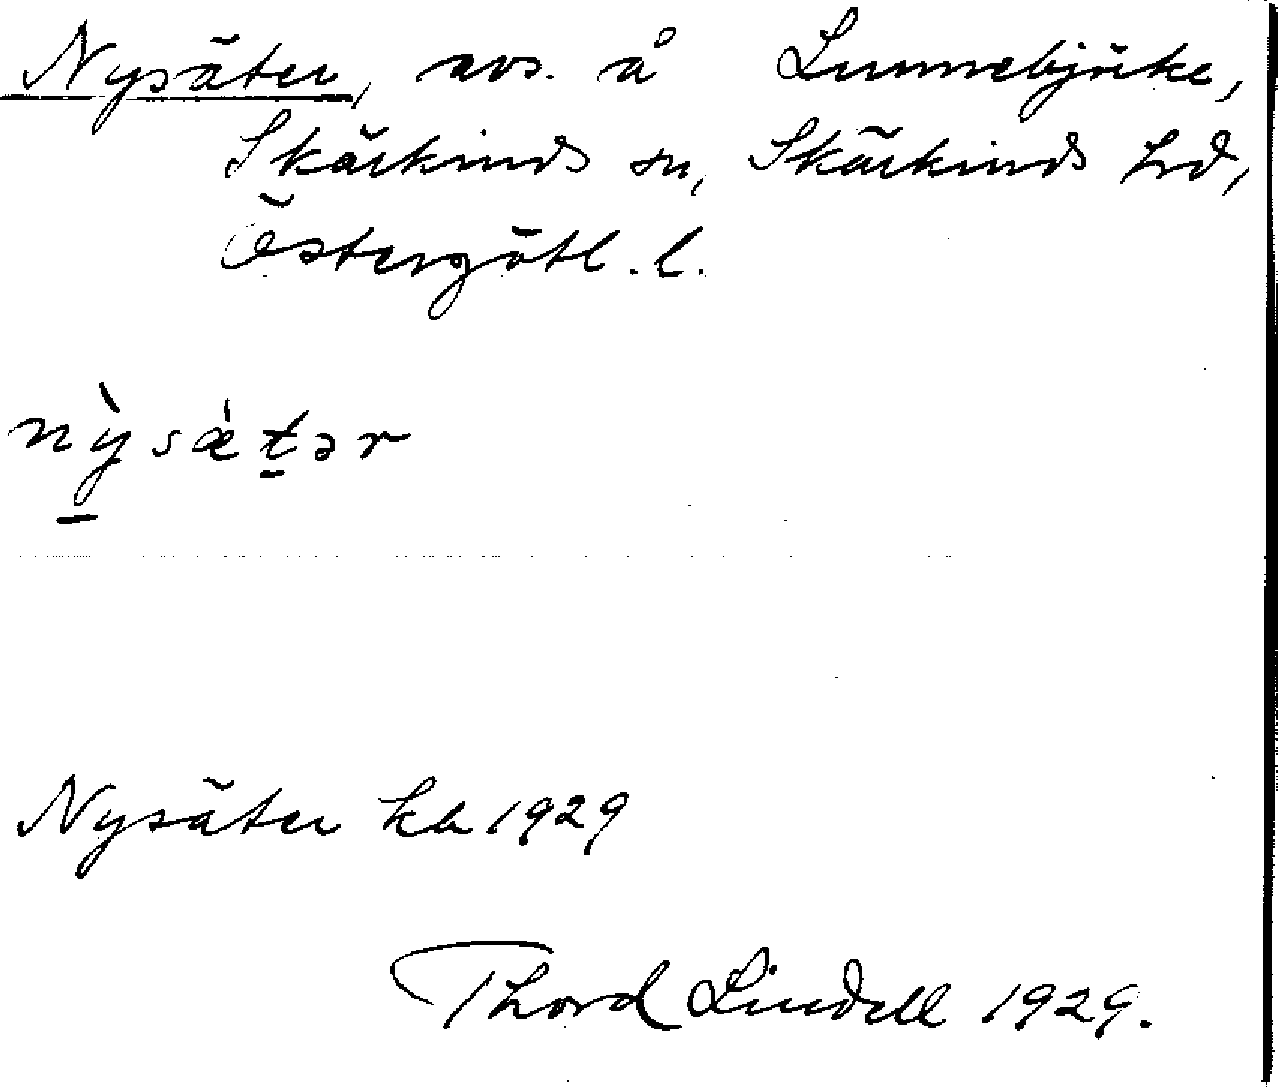 Nysäter, avs. å Lunnebjörke,
Skärkinds sn, Skärkinds hd,
Östergötl. l.
nỳsæ̀ṯər
Nysäter kb 1929
Thord Lindell 1929.